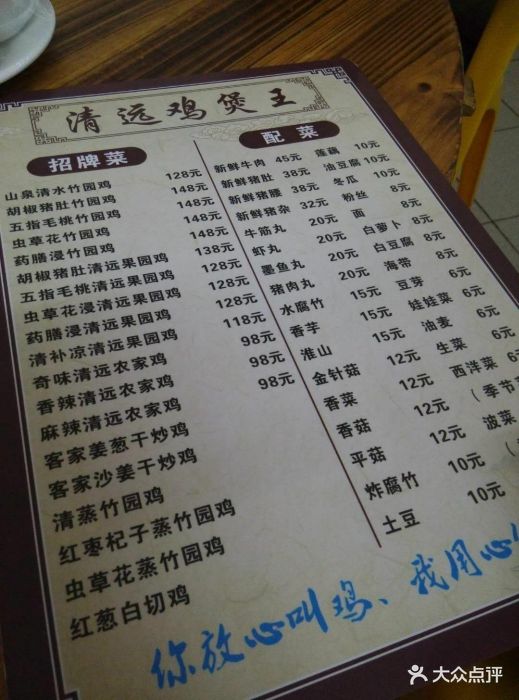 清远鸡煲王
招牌菜
山泉清水竹园鸡 128元
胡椒猪肚竹园鸡 148元
五指毛桃竹园鸡 148元
虫草花竹园鸡 148元
药膳浸竹园鸡 148元
胡椒猪肚清远果园鸡 138元
五指毛桃清远果园鸡 128元
虫草花浸清远果园鸡 128元
药膳浸清远果园鸡 128元
清补凉清远果园鸡 118元
奇味清远农家鸡 98元
香辣清远农家鸡 98元
麻辣清远农家鸡 98元
客家姜葱干炒鸡
客家沙姜干炒鸡
清蒸竹园鸡
红枣杞子蒸竹园鸡
虫草花蒸竹园鸡
红葱白切鸡
配菜
新鲜牛肉 45元 莲藕 10元
新鲜猪肚 38元 油豆腐 10元
新鲜猪腰 38元 冬瓜 10元
新鲜猪杂 32元 粉丝 8元
牛筋丸 20元 面 8元
虾丸 20元 白萝卜 8元
墨鱼丸 20元 白豆腐 8元
猪肉丸 20元 海带 8元
水腐竹 15元 豆芽 6元
香芋 15元 娃娃菜 6元
淮山 15元 油麦 6元
金针菇 12元 生菜 6元
香菜 12元 西洋菜 6元
香菇 12元 (季节
平菇 12元 菠菜
炸腐竹 10元 (
土豆 10元
你放心叫鸡、我用心
大众点评